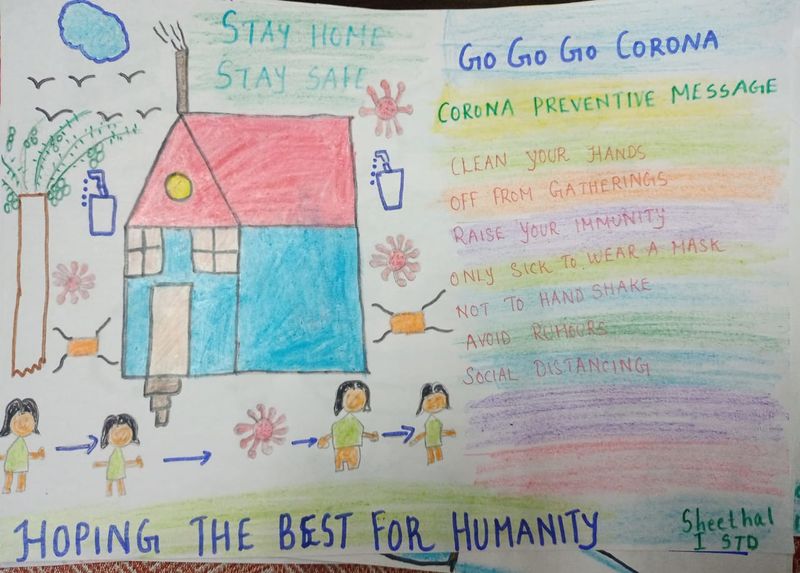 STAY HOME
STAY SAFE
GO GO GO CORONA
CORONA PREVENTIVE MESSAGE
CLEAN YOUR HANDS
OFF FROM GATHERINGS
RAISE YOUR IMMUNITY
ONLY SICK TO WEAR A MASK
NOT TO HAND SHAKE
AVOID RUMOURS
SOCIAL DISTANCING
HOPING THE BEST FOR HUMANITY
Sheethal
I STD